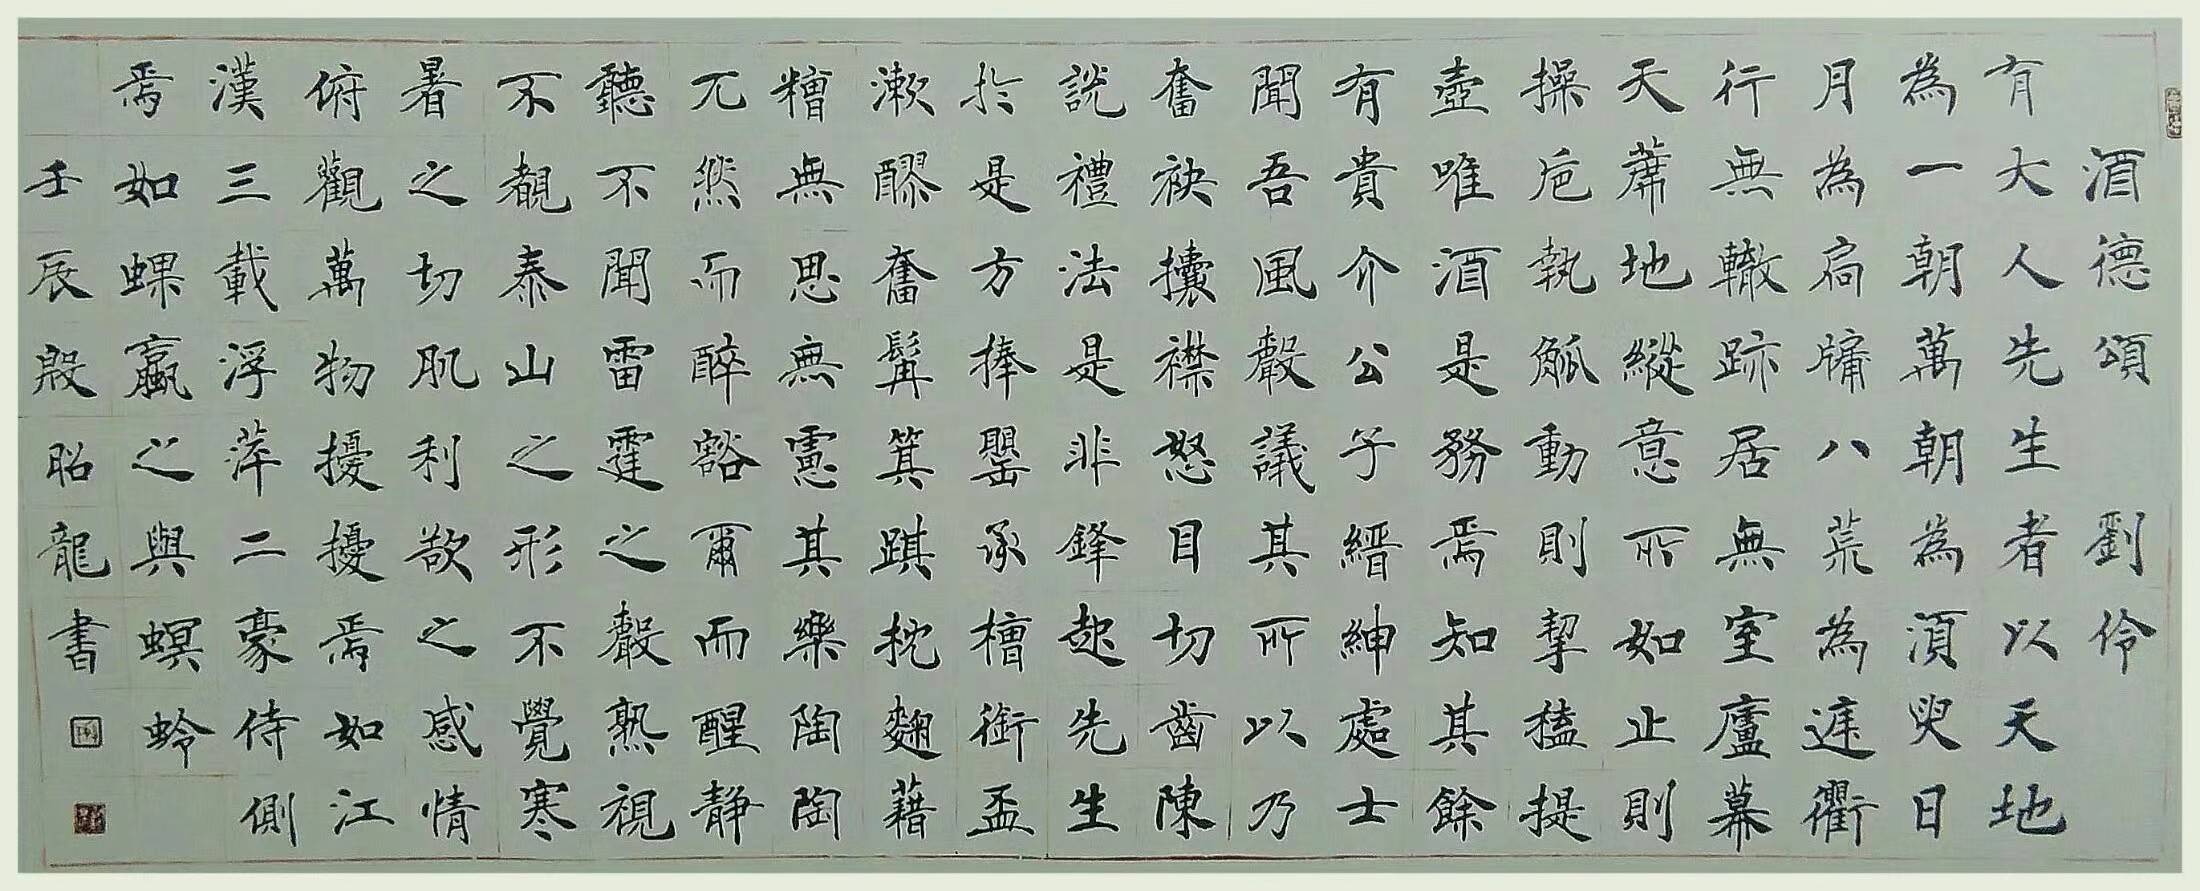 酒德頌 劉伶
有大人先生者以天地
為一朝萬朝為須臾日
月為扃牖八荒為庭衢
行無轍跡居無室廬幕
天蓆地縱意所如止則
操卮執觚動則挈榼提
壺唯酒是務焉知其餘
有貴介公子縉紳處士
聞吾風聲議其所以乃
奮袂攘襟怒目切齒陳
說禮法是非鋒起先生
於是方捧罌承槽銜盃
漱醪奮髯箕踑枕麴藉
糟無思無慮其樂陶陶
兀然而醉豁爾而醒靜
聽不聞雷霆之聲熟視
不覩泰山之形不覺寒
暑之切肌利欲之感情
俯觀萬物擾擾焉如江
漢三載浮萍二豪侍側
焉如蜾蠃之與螟蛉
壬辰殷昭龍書